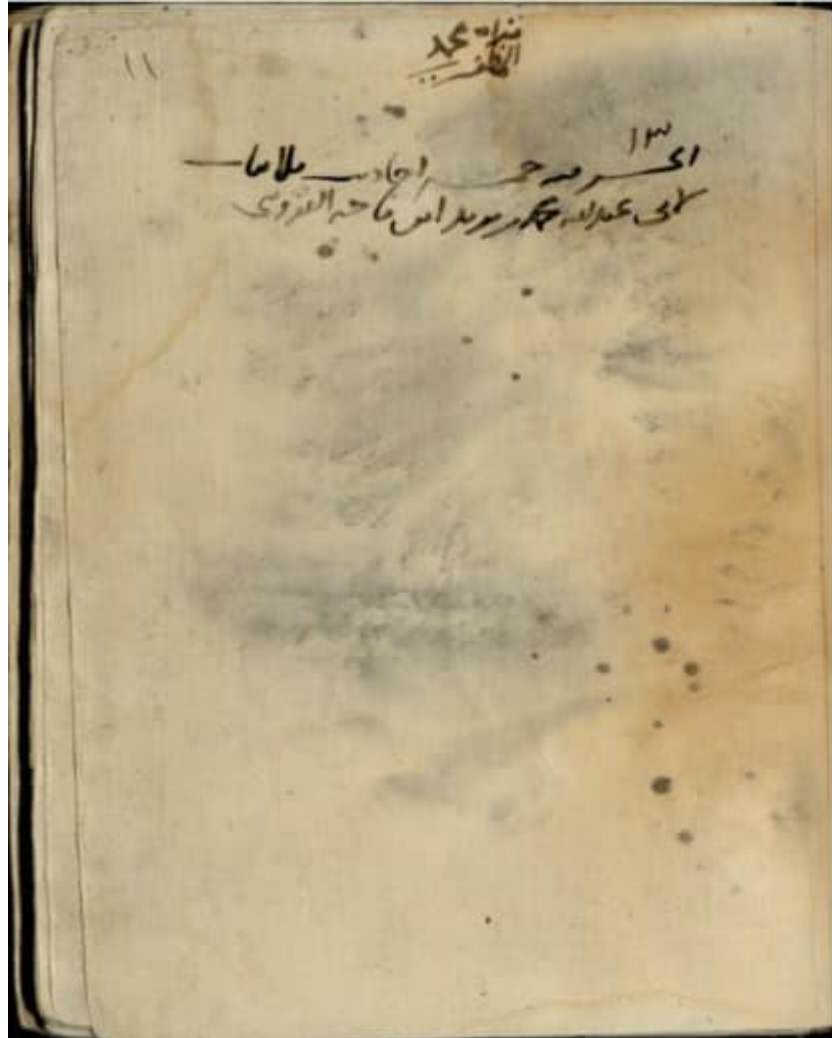 محمد
المظفري
١١
١٣
الجزء فيه خمسة احاديث ثلاثيات
لابي عبد الله محمد بن يزيد ابن ماجه القزويني